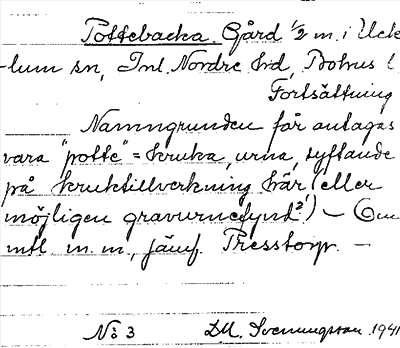 Pottebacka. Gård 1/2 m. i Ucke
-lum sn, Inl. Nordre hd, Bohus l
Fortsättning
Namngrunden får antagas
vara "potte" = kruka, urna, syftande
på kruktillverkning här (eller
möjligen gravurnefynd?) – Om
mtl m.m., jämf. Presstorp. –
No 3 D.U. Svenungsson 1941